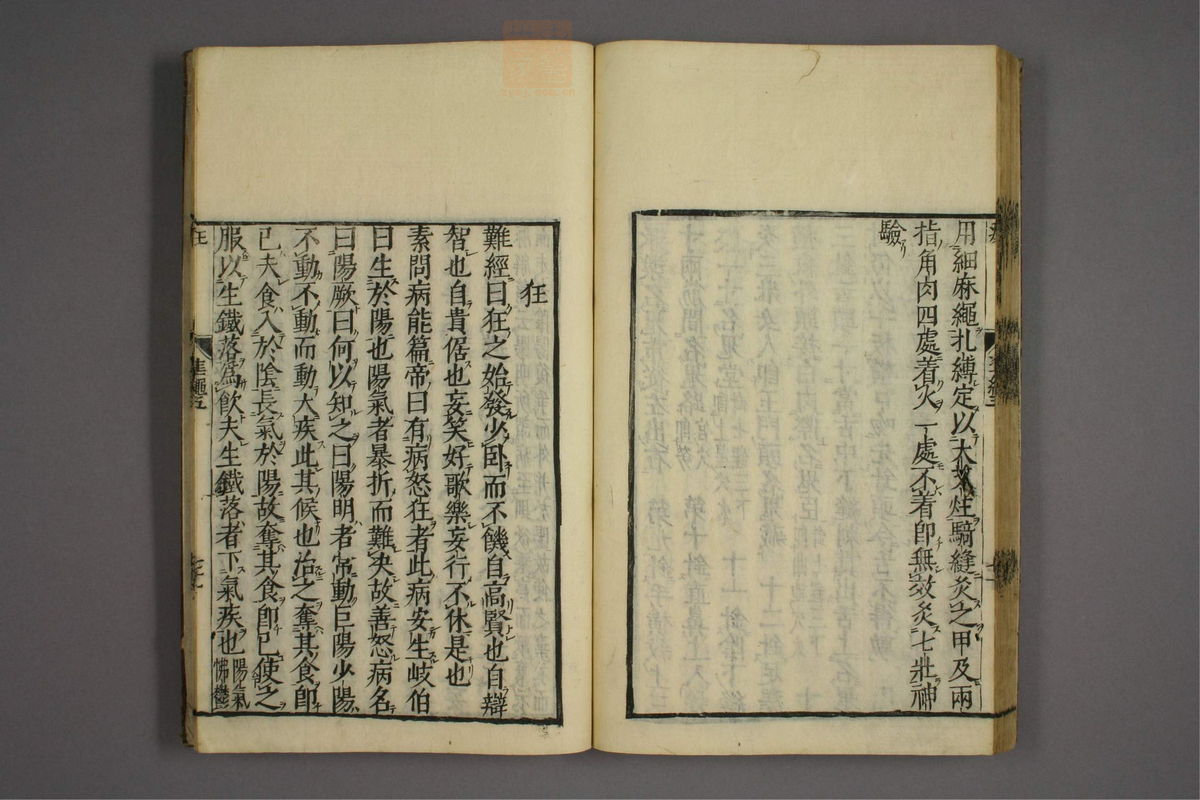 用細麻繩扎縛定以大艾炷騎縫灸之甲及兩
指角肉四處着火一處不着即無效灸七壯神
驗
狂
難經曰狂之始發少卧而不饑自高賢也自辯
智也自貴倨也妄笑好歌樂妄行不休是也
素問病能篇帝曰有病怒狂者此病安生岐伯
曰生於陽也陽氣者暴折而難決故善怒病名
曰陽厥曰何以知之曰陽明者常動巨陽少陽
不動不動而動大疾此其候也治之奪其食即
已夫食入於陰長氣於陽故奪其食即已使之
服以生鐵落為飲夫生鐵落者下氣疾也陽氣
怫鬱